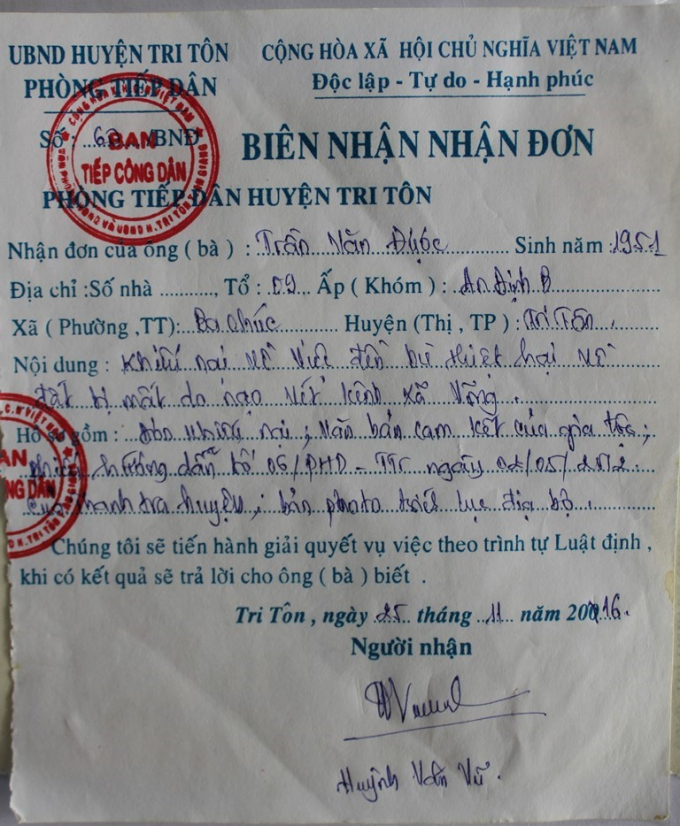 UBND HUYỆN TRI TÔN
CỘNG HÒA XÃ HỘI CHỦ NGHĨA VIỆT NAM
PHÒNG TIẾP DÂN
Độc lập - Tự do - Hạnh phúc
Số : ..../BNĐ
BAN
TIẾP CÔNG DÂN
BIÊN NHẬN NHẬN ĐƠN
PHÒNG TIẾP DÂN HUYỆN TRI TÔN
Nhận đơn của ông ( bà ) : Trần Văn Được Sinh năm : 1951
Địa chỉ :Số nhà .........., Tổ : 09 Ấp ( Khóm ) : An Định B
Xã ( Phường ,TT): Ba Chúc Huyện (Thị , TP ) : Tri Tôn.
Nội dung : Khiếu nại về việc đền bù thiệt hại về
đất bị mất do nạo vét kênh xã Võng.
Hồ sơ gồm : Đơn khiếu nại ; Văn bản cam kết của gia tộc ;
phiếu hướng dẫn số 06/PHD - TTr ngày 02/05/2012
của thanh tra huyện ; bản photo trích lục địa bộ.
Chúng tôi sẽ tiến hành giải quyết vụ việc theo trình tự Luật định ,
khi có kết quả sẽ trả lời cho ông ( bà ) biết .
Tri Tôn , ngày 25 tháng 11 năm 2016.
Người nhận
Huỳnh Văn Vũ.